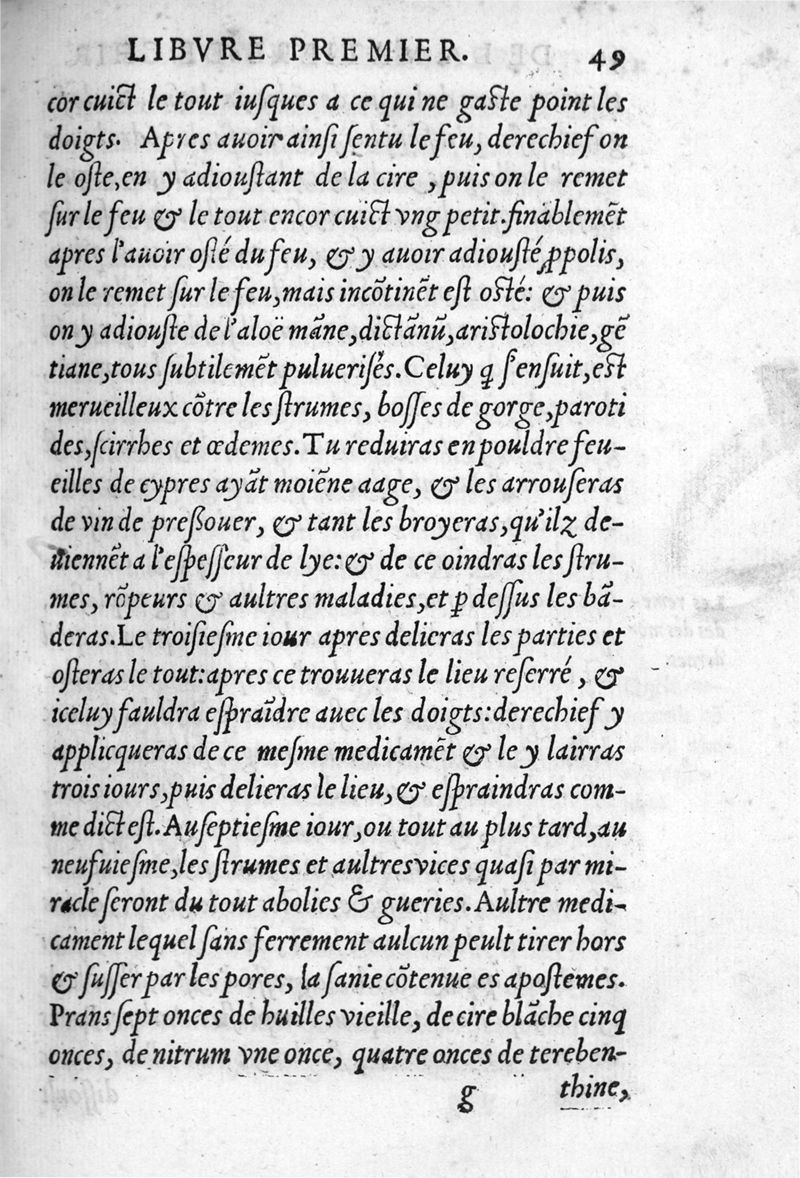 LIBVRE PREMIER. 49
cor cuict le tout iuſques a ce qui ne gaſte point les
doigts. Apres auoir ainſi ſentu le feu, derechief on
le oſte,en y adiouſtant de la cire ,puis on le remet
ſur le feu & le tout encor cuict vng petit.finablemēt
apres l'auoir oſté du feu, & y auoir adiouſté ꝓpolis,
on le remet ſur le feu,mais incōtinēt eſt oſté: & puis
on y adiouſte de l'aloë māne,dictānū,ariſtolochie,gē
tiane,tous ſubtilemēt pulueriſés.Celuy q̄ ſ'enſuit,eſt
merueilleux cōtre les ſtrumes, boſſes de gorge,paroti
des,ſcirrhes et œdemes.Tu reduiras en pouldre feu-
eilles de cypres ayāt moiēne aage, & les arrouſeras
de vin de preßouer, & tant les broyeras,qu'ilz de-
uiennēt a l'eſpeſſeur de lye: & de ce oindras les ſtru-
mes, rōpeurs & aultres maladies,et ꝑ deſſus les bā-
deras.Le troiſieſme iour apres delieras les parties et
oſteras le tout:apres ce trouueras le lieu reſerré , &
iceluy fauldra eſpraīdre auec les doigts:derechief y
applicqueras de ce meſme medicamēt & le y lairras
trois iours,puis delieras le lieu,& eſpraindras com-
me dict eſt.Au ſeptieſme iour,ou tout au plus tard,au
neufuieſme,les ſtrumes et aultres vices quaſi par mi-
racle ſeront du tout abolies & gueries.Aultre medi-
cament lequel ſans ferrement aulcun peult tirer hors
& ſuſſer par les pores, la ſanie cōtenue es apoſtemes.
Prans ſept onces de huilles vieille, de cire blāche cinq
onces, de nitrum vne once, quatre onces de tereben-
g thine,